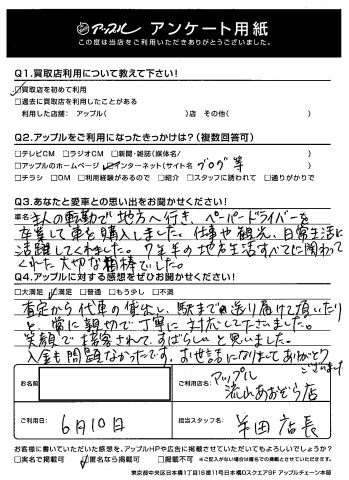 アップル アンケート用紙
この度は当店をご利用いただきありがとうございました。
Q1.買取店利用について教えて下さい!
☑買取店を初めて利用
□過去に買取店を利用したことがある
利用した店舗: アップル( )店 その他( )
Q2.アップルをご利用になったきっかけは?(複数回答可)
□テレビCM □ラジオCM □新聞・雑誌(媒体名/ )
□アップルのホームページ ☑インターネット(サイト名 ブログ等 )
□チラシ □DM □利用経験があるので □紹介 □スタッフに誘われて □通りがかりで
Q3.あなたと愛車との思い出をお聞かせください!
車名: 主人の転勤で地方へ行き、ペーパードライバーを
卒業して車を購入しました。仕事や観光、日常生活に
活躍してくれました。7年半の地方生活すべてに関わって
くれた大切な相棒でした。
Q4.アップルに対する感想をぜひお聞かせください!
□大満足 ☑満足 □普通 □もう少し □不満
査定から代車の貸出し、駅までお送り届けて頂いたり
と、常に親切で丁寧に対応して下さいました。
笑顔で接客されて、すばらしいと思いました。
入金も問題なかったです。お世話になりましてありがとう
ございました
お名前
ご利用店名: アップル
流山あおぞら店
ご利用日: 6月10日
担当スタッフ名: 半田店長
お客様に書いていただいた感想を、アップルHPや広告に掲載させていただいてもよろしいでしょうか?
□実名で掲載可 ☑匿名なら掲載可 □掲載不可 ※ご記入がない場合は匿名での掲載とさせていただきます。
東京都中央区日本橋1丁目16番11号日本橋Dスクエア9F アップルチェーン本部